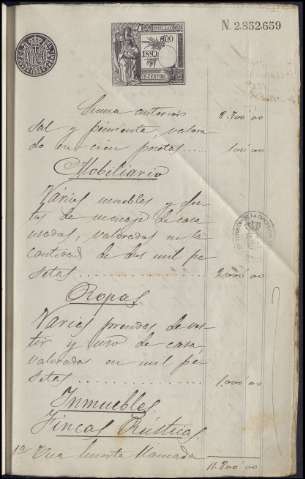 N. 2.852.659
Suma anterior 8.700'00
sal y pimienta, valora
do en cien pesetas .... 100'00
Mobiliario
Varios muebles y efec
tos de menaje de casa
usados, valorados en la
cantidad de dos mil pe
setas .......... 2.000'00
Ropas
Varias prendas de ves
tir y uso de casa,
valoradas en mil pe
setas .......... 1.000'00
Inmuebles
Fincas Rústicas
1ª Una huerta llamada
11.800'00